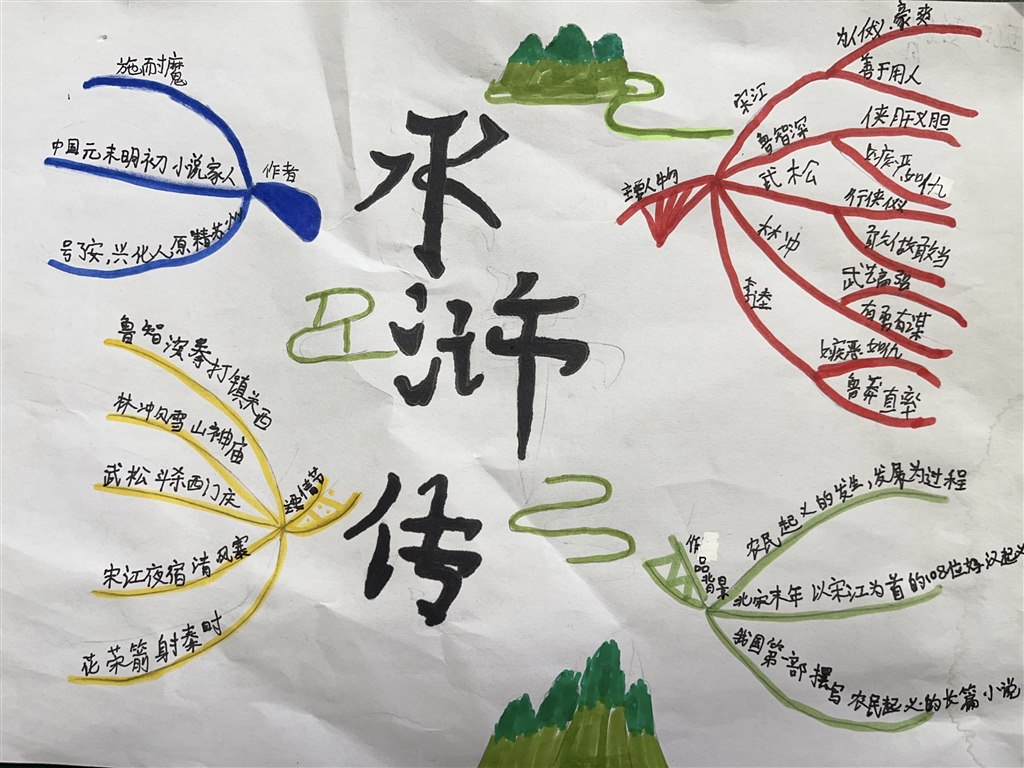 水浒传
作者
施耐魔
中国元末明初小说家人
号子安,兴化人原精苏州
主要人物
宋江
仗义、豪爽
善于用人
鲁智深
侠肝义胆
嫉恶如仇
武松
行侠仗义
敢做敢当
林冲
武艺高强
有勇有谋
李逵
嫉恶如仇
鲁莽直率
情节
鲁智深拳打镇关西
林冲风雪山神庙
武松斗杀西门庆
宋江夜宿清风寨
花荣箭射秦时
作品背景
农民起义的发生,发展为过程
北宋末年以宋江为首的108位好汉起义
我国第一部描写农民起义的长篇小说